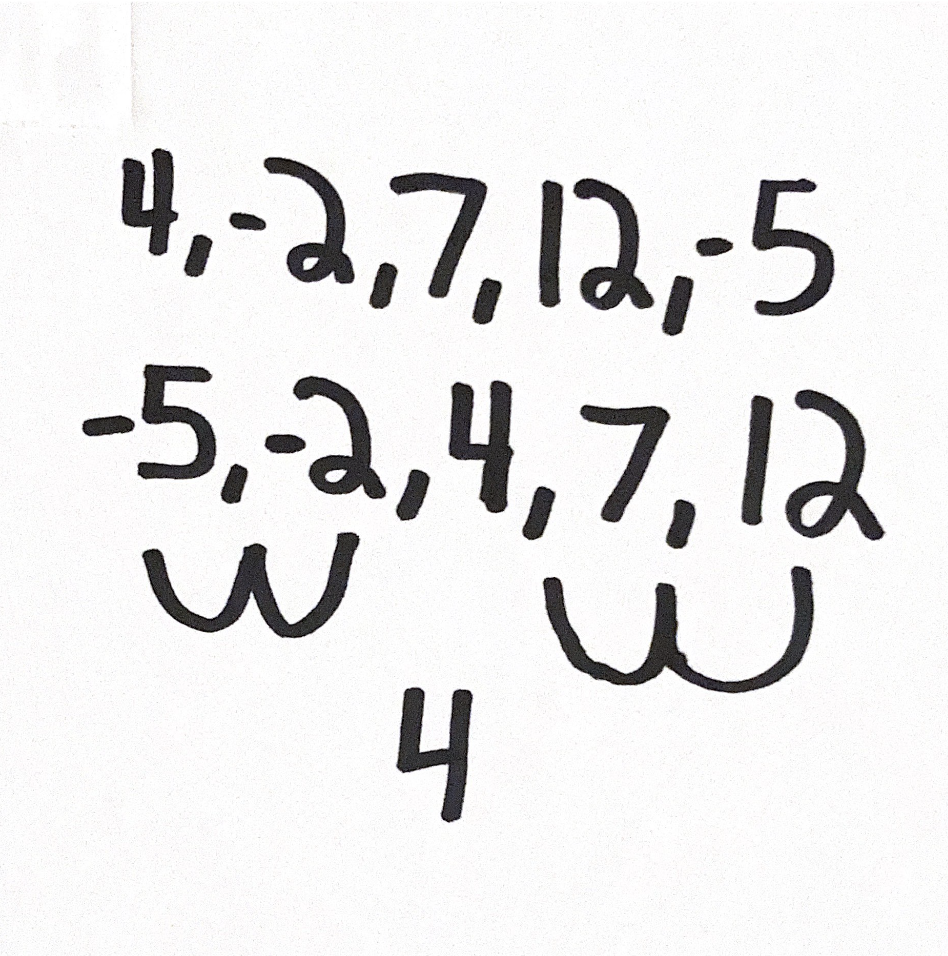 4,-2,7,12,-5
-5,-2,4,7,12
4